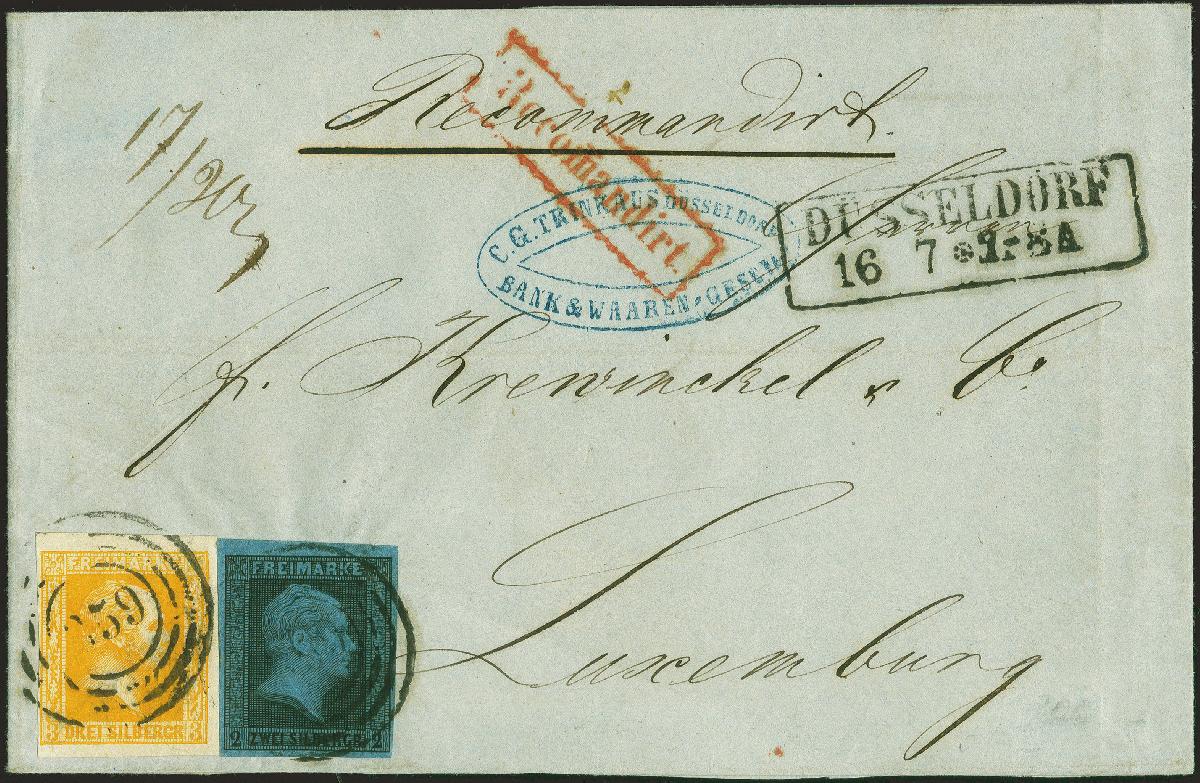 Recommandirt.
17/
Recomandirt.
C.G. TRINKAUS DÜSSELDORF
BANK & WAAREN-GESCH
DÜSSELDORF
16 7 *
Herren
f. Krewinckel & Co
Luxemburg
FREIMARKE
259
3 DREI SILBERGR 3
FREIMARKE
2 ZWEI SILBERGR 2